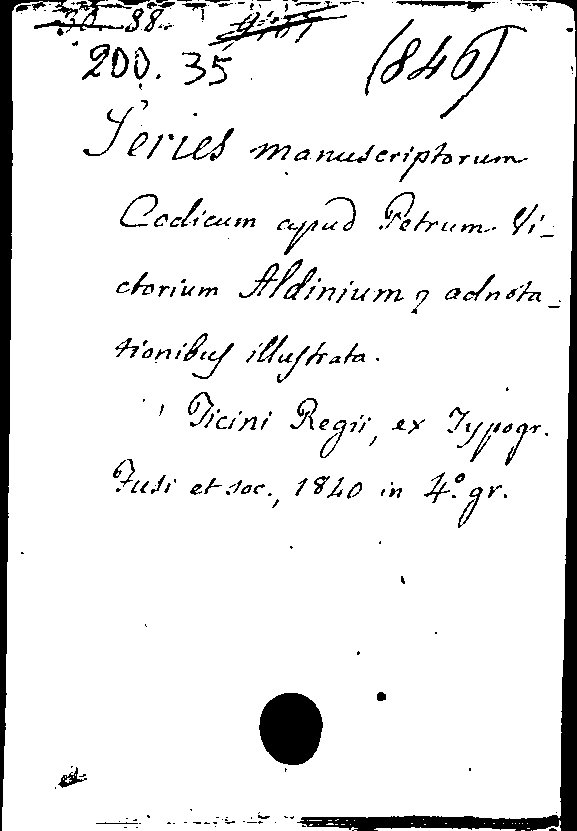 30. 88.
200. 35
(846)
Series manuscriptorum
Codicum apud Petrum Vi-
ctorium Aldinium q adnota-
tionibus illustrata.
Ticini Regii, ex Typogr.
Fusi et soc., 1840 in 4.° gr.